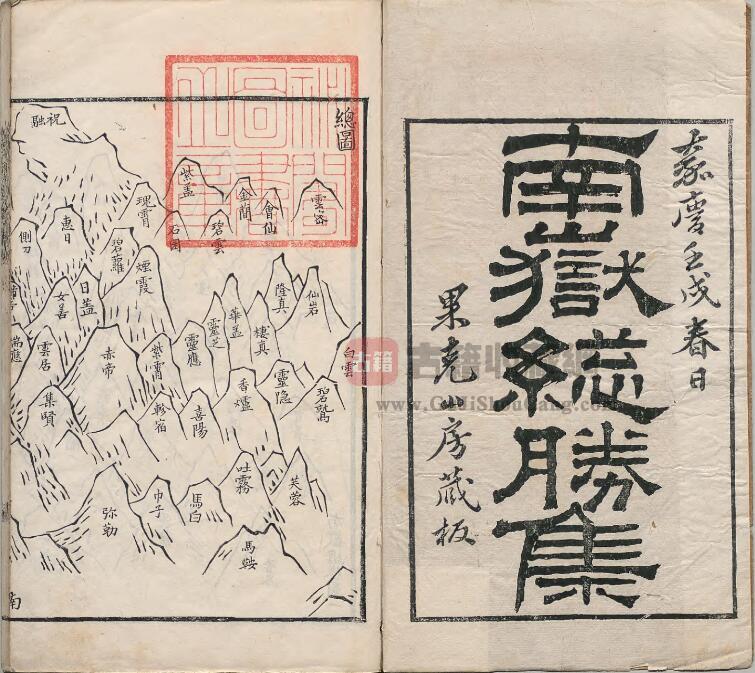 嘉慶壬戌春日
南嶽緫勝集
果克山房藏板
總圖
雲密
會仙
金簡
紫蓋
碧雲
石囷
祝融
惠日
側刀
碧蘿
煙霞
日蓋
仙岩
隆真
棲真
華蓋
靈芝
靈應
紫霄
赤帝
雲居
白雲
碧鷲
靈隐
香爐
喜陽
軫宿
集賢
芙蓉
吐霧
馬白
巾子
弥勒
馬鞍
南
古籍
www.GuJiShouCang.com